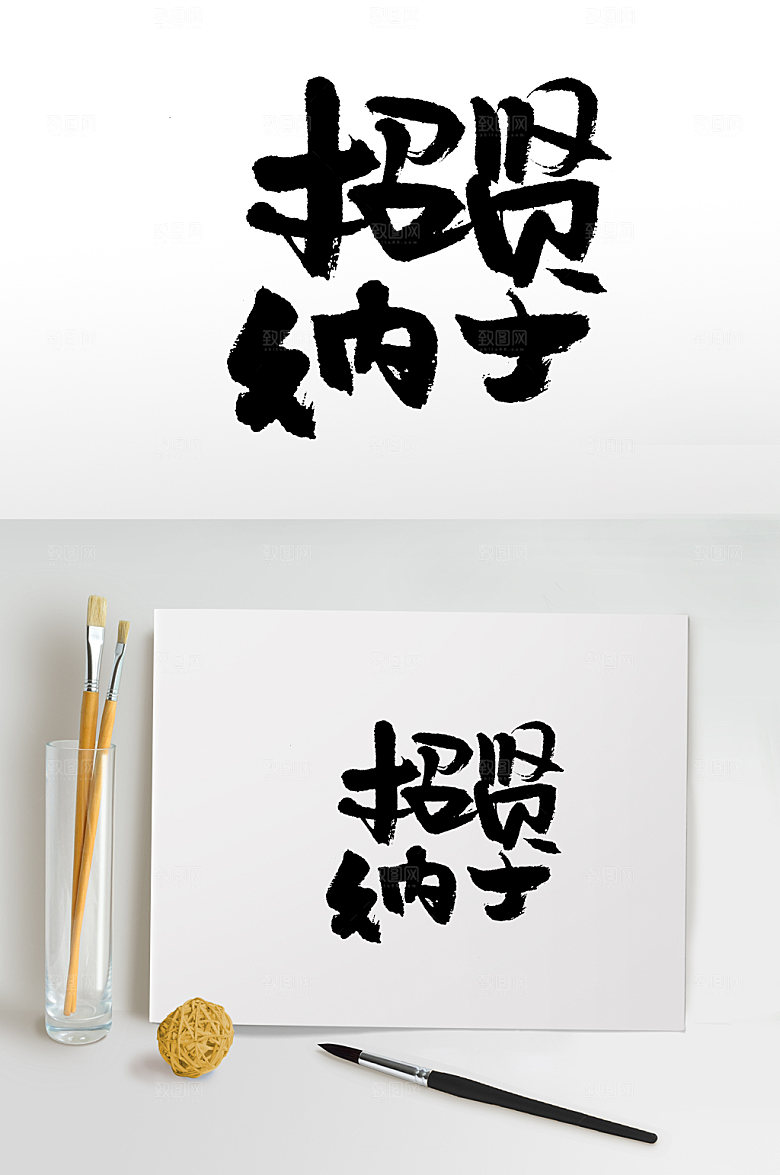 招贤
纳士
招贤
纳士